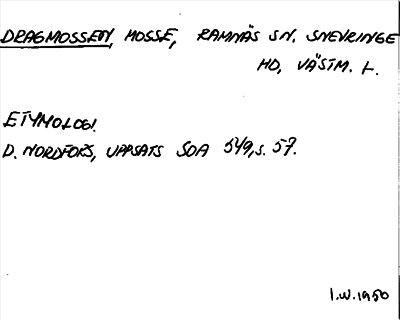 DRAGMOSSEN, MOSSE, RAMNÄS SN. SNEVRINGE
HD, VÄSTM. L.
ETYMOLOGI.
D. NORDFORS, UPPSATS SOA 549, S. 57.
I.W. 1950